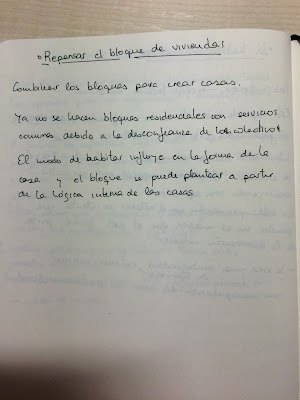 • Repensar el bloque de viviendas
Combinar los bloques para crear casas.
Ya no se hacen bloques residenciales con servicios
comunes debido a la desconfianza de los colectivos
El modo de habitar influye en la forma de la
casa y el bloque se puede plantear a partir
de la lógica interna de las casas